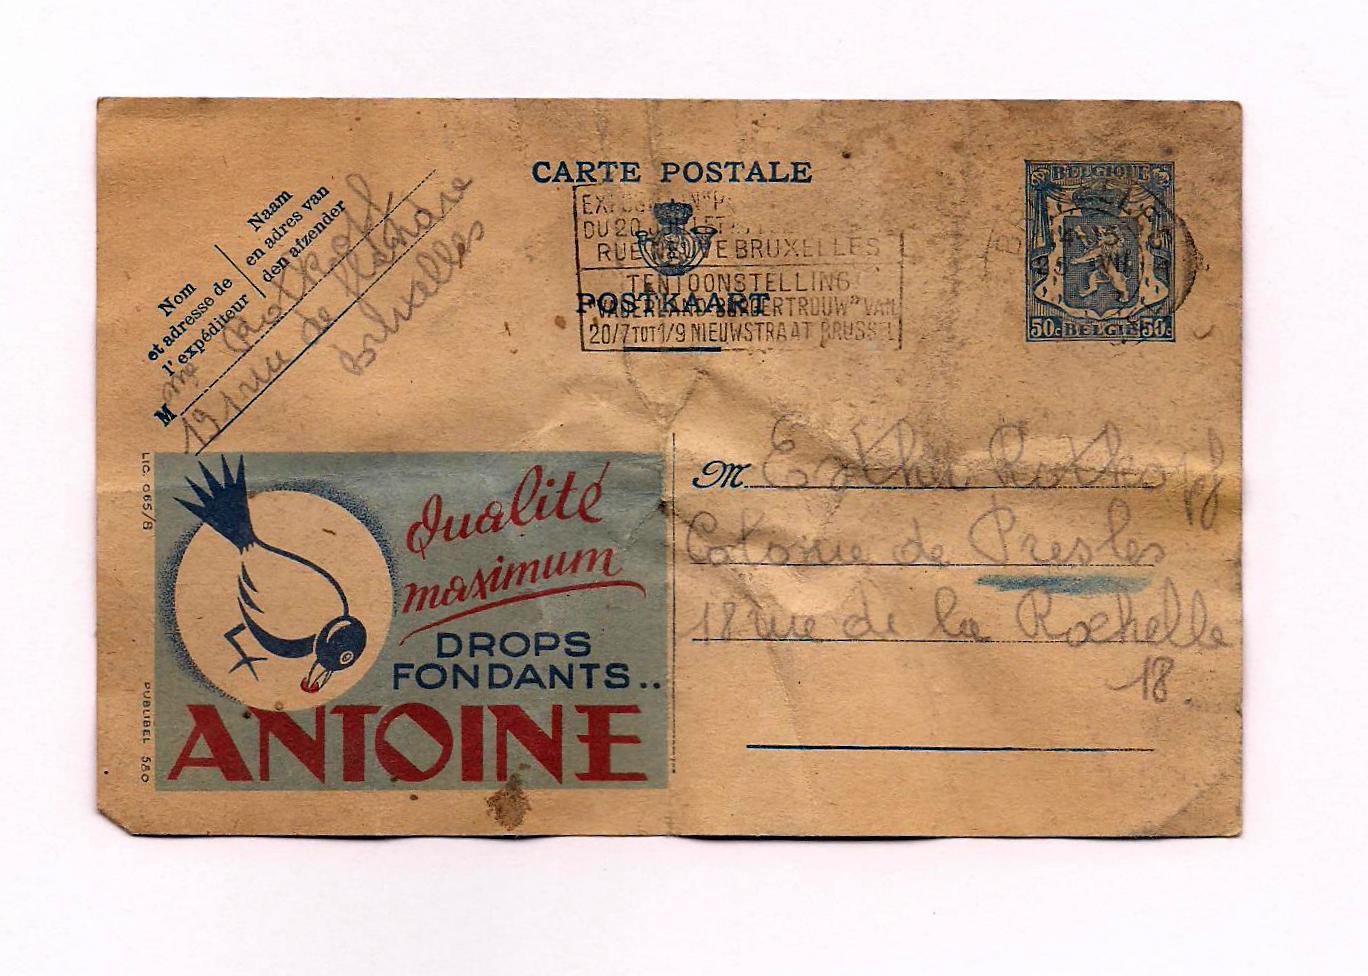 CARTE POSTALE
POSTKAART
Nom
et adresse de
l'expéditeur
Naam
en adres van
den afzender
M me Rotkopf
191 rue de Flandre
Bruxelles
DU 20
RUE NEUVE BRUXELLES
TENTOONSTELLING
"VADERLAND BURGERTROUW" VAN
20/7 TOT 1/9 NIEUWSTRAAT BRUSSEL
BELGIQUE
50c BELGIË 50c
M. Esther Rotkopf
Colonie de Presles
18 rue de la Rochelle
18
LIC. 065/8
PUBLIBEL 580
Qualité
maximum
DROPS
FONDANTS..
ANTOINE